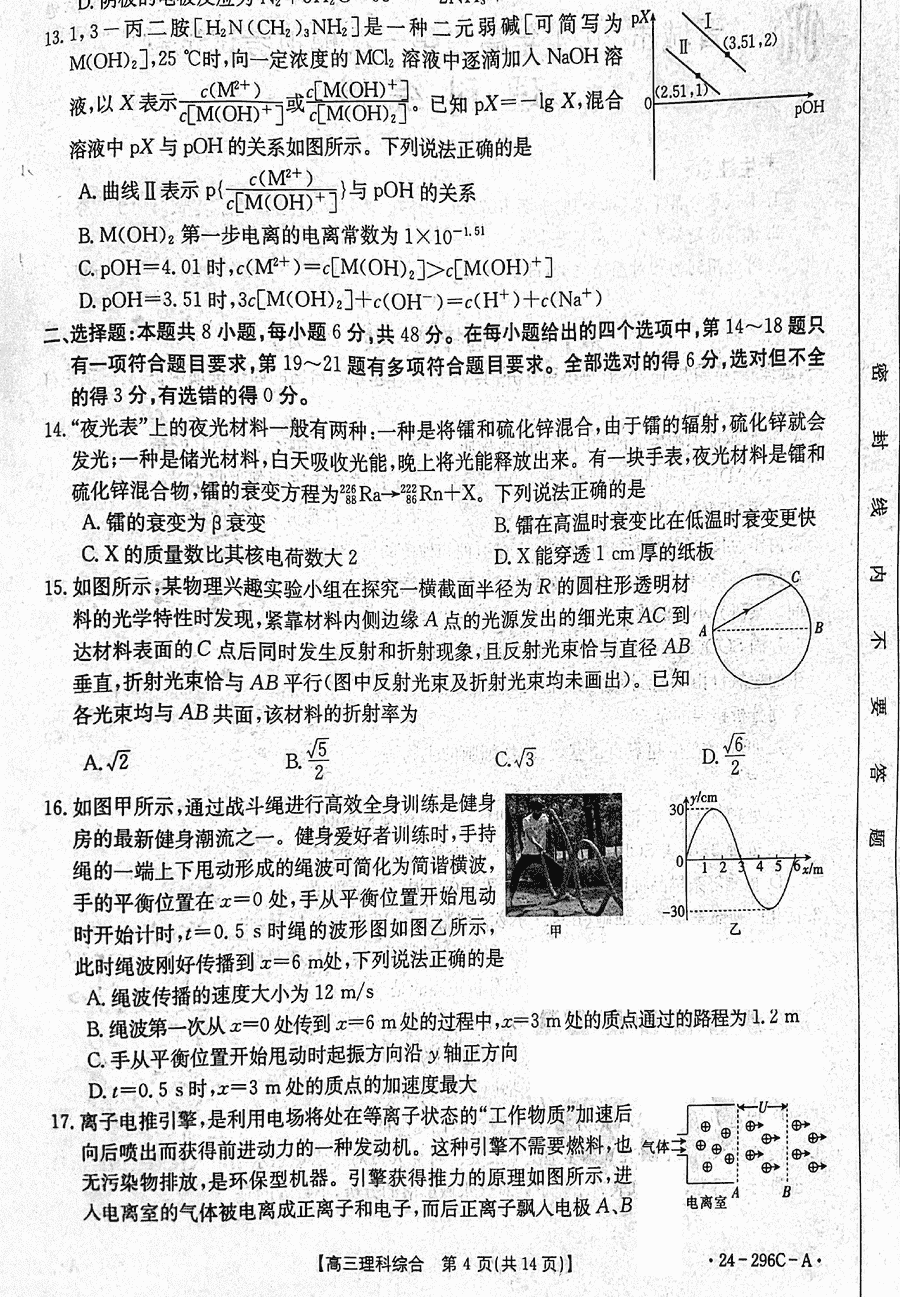 13. 1,3-丙二胺[H₂N(CH₂)₃NH₂]是一种二元弱碱[可简写为
M(OH)₂],25 ℃时,向一定浓度的 MCl₂ 溶液中逐滴加入 NaOH 溶
液,以 X 表示 c(M²⁺)/c[M(OH)⁺] 或 c[M(OH)⁺]/c[M(OH)₂]。已知 pX=-lg X,混合
溶液中 pX 与 pOH 的关系如图所示。下列说法正确的是
pX
Ⅰ
Ⅱ
(3.51,2)
(2.51,1)
0
pOH
A. 曲线Ⅱ表示 p{c(M²⁺)/c[M(OH)⁺]}与 pOH 的关系
B. M(OH)₂ 第一步电离的电离常数为 1×10⁻¹·⁵¹
C. pOH=4.01 时,c(M²⁺)=c[M(OH)₂]>c[M(OH)⁺]
D. pOH=3.51 时,3c[M(OH)₂]+c(OH⁻)=c(H⁺)+c(Na⁺)
二、选择题:本题共 8 小题,每小题 6 分,共 48 分。在每小题给出的四个选项中,第 14~18 题只
有一项符合题目要求,第 19~21 题有多项符合题目要求。全部选对的得 6 分,选对但不全
的得 3 分,有选错的得 0 分。
14. “夜光表”上的夜光材料一般有两种:一种是将镭和硫化锌混合,由于镭的辐射,硫化锌就会
发光;一种是储光材料,白天吸收光能,晚上将光能释放出来。有一块手表,夜光材料是镭和
硫化锌混合物,镭的衰变方程为²²⁶₈₈Ra→²²²₈₆Rn+X。下列说法正确的是
A. 镭的衰变为 β 衰变
B. 镭在高温时衰变比在低温时衰变更快
C. X 的质量数比其核电荷数大 2
D. X 能穿透 1 cm 厚的纸板
15. 如图所示,某物理兴趣实验小组在探究一横截面半径为 R 的圆柱形透明材
料的光学特性时发现,紧靠材料内侧边缘 A 点的光源发出的细光束 AC 到
达材料表面的 C 点后同时发生反射和折射现象,且反射光束恰与直径 AB
垂直,折射光束恰与 AB 平行(图中反射光束及折射光束均未画出)。已知
各光束均与 AB 共面,该材料的折射率为
A
B
C
A. √2
B. √5/2
C. √3
D. √6/2
16. 如图甲所示,通过战斗绳进行高效全身训练是健身
房的最新健身潮流之一。健身爱好者训练时,手持
绳的一端上下甩动形成的绳波可简化为简谐横波,
手的平衡位置在 x=0 处,手从平衡位置开始甩动
时开始计时,t=0.5 s 时绳的波形图如图乙所示,
此时绳波刚好传播到 x=6 m处,下列说法正确的是
甲
y/cm
30
0
1 2 3 4 5 6 x/m
-30
乙
A. 绳波传播的速度大小为 12 m/s
B. 绳波第一次从 x=0 处传到 x=6 m 处的过程中,x=3 m 处的质点通过的路程为 1.2 m
C. 手从平衡位置开始甩动时起振方向沿 y 轴正方向
D. t=0.5 s 时,x=3 m 处的质点的加速度最大
17. 离子电推引擎,是利用电场将处在等离子状态的“工作物质”加速后
向后喷出而获得前进动力的一种发动机。这种引擎不需要燃料,也
无污染物排放,是环保型机器。引擎获得推力的原理如图所示,进
入电离室的气体被电离成正离子和电子,而后正离子飘入电极 A、B
U
气体
电离室
A
B
【高三理科综合 第 4 页(共 14 页)】
·24-296C-A·
密
封
线
内
不
要
答
题